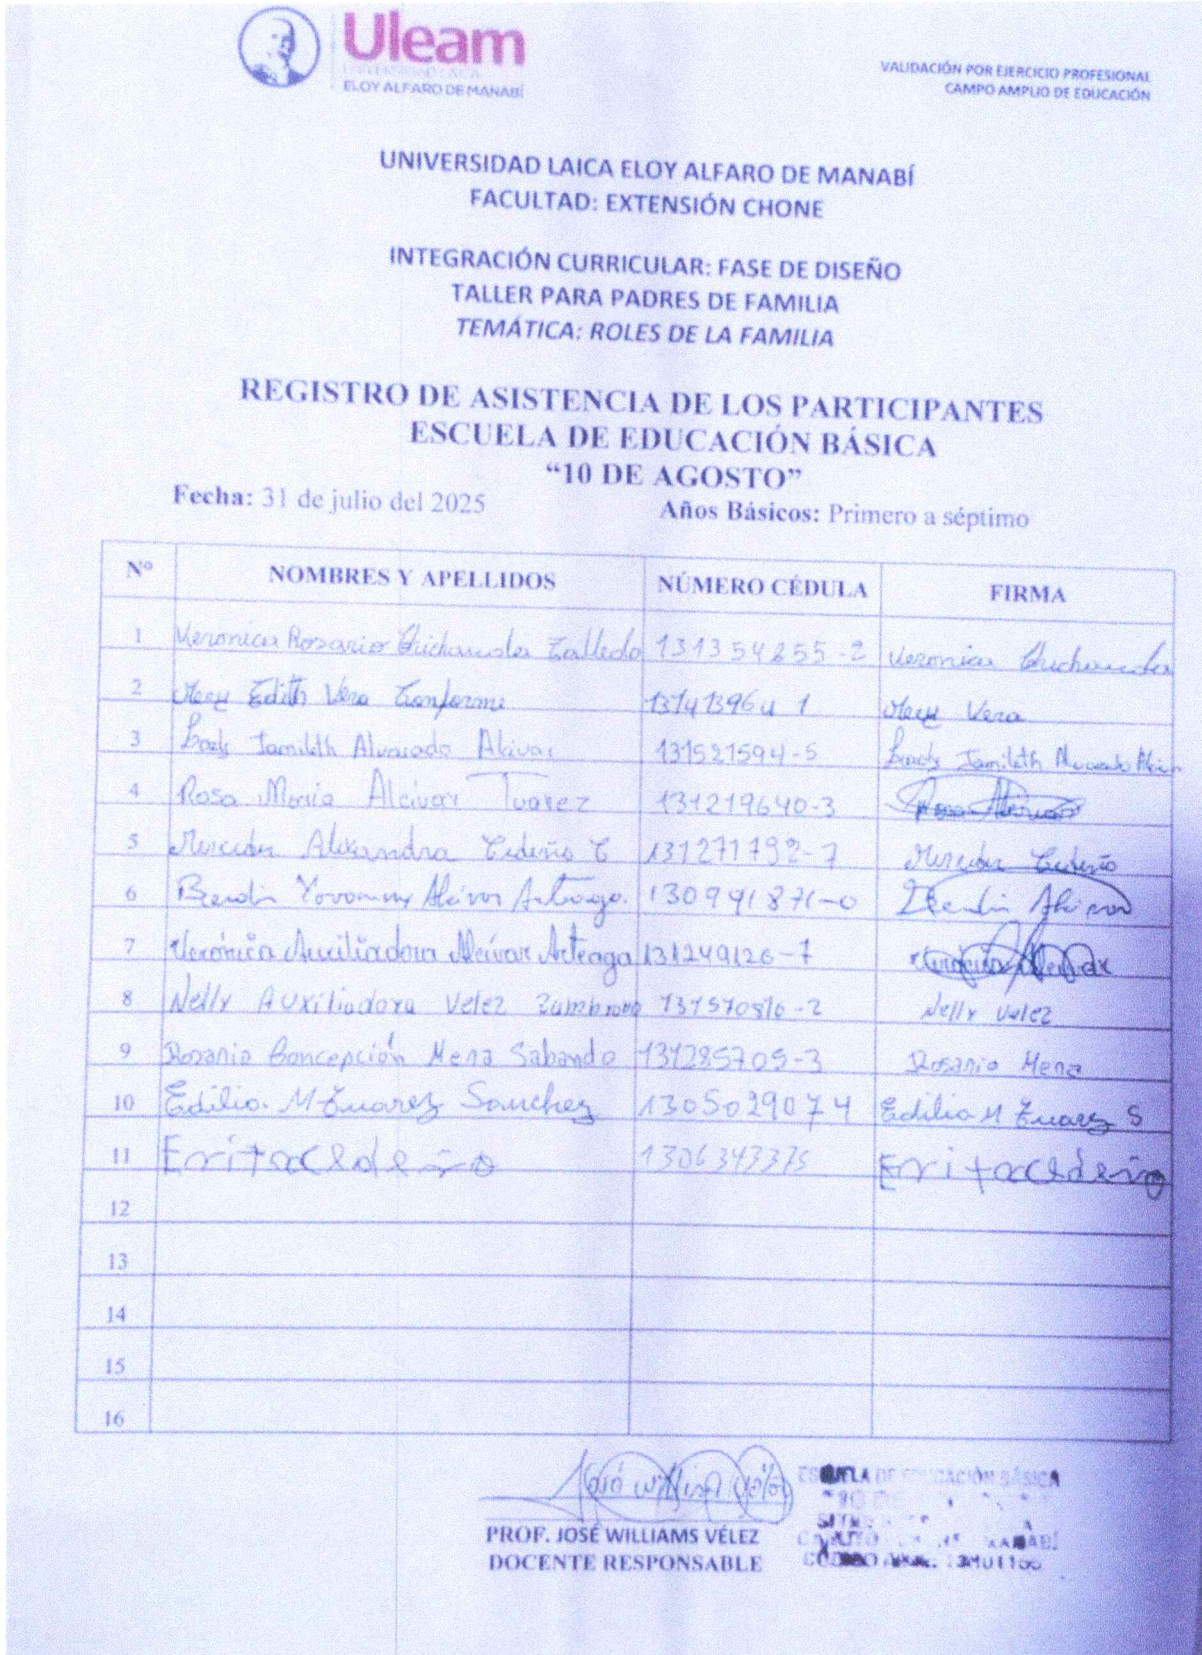 Uleam
UNIVERSIDAD LAICA
ELOY ALFARO DE MANABÍ
VALIDACIÓN POR EJERCICIO PROFESIONAL
CAMPO AMPLIO DE EDUCACIÓN
UNIVERSIDAD LAICA ELOY ALFARO DE MANABÍ
FACULTAD: EXTENSIÓN CHONE
INTEGRACIÓN CURRICULAR: FASE DE DISEÑO
TALLER PARA PADRES DE FAMILIA
TEMÁTICA: ROLES DE LA FAMILIA
REGISTRO DE ASISTENCIA DE LOS PARTICIPANTES
ESCUELA DE EDUCACIÓN BÁSICA
“10 DE AGOSTO”
Fecha: 31 de julio del 2025 Años Básicos: Primero a séptimo
Nº NOMBRES Y APELLIDOS NÚMERO CÉDULA FIRMA
1 Veronica Rosario 131354255-2 Veronica
2 Edith Vera Conforme Vera
3 Jamileth Alvarado Alcivar 131521594-5 Jamileth Alvarado
4 Rosa Maria Alcivar Tuarez 131219640-3 Rosa Alcivar
5 Alexandra Cedeño C 131271792-7 Cedeño
6 Alcivar Arteaga. 130991871-0 Alcivar
7 Verónica Auxiliadora Alcívar Arteaga 131249126-7
8 Nelly Auxiliadora Velez Zambrano 131570816-2 Nelly Velez
9 Rosario Concepción Mena Sabando 131285705-3 Rosario Mena
10 Edilia M Tuarez Sanchez 1305029074 Edilia M Tuarez S
11 Eritacedeño 1306343375 Eritacedeño
12
13
14
15
16
ESCUELA DE EDUCACIÓN BÁSICA
PROF. JOSÉ WILLIAMS VÉLEZ
DOCENTE RESPONSABLE